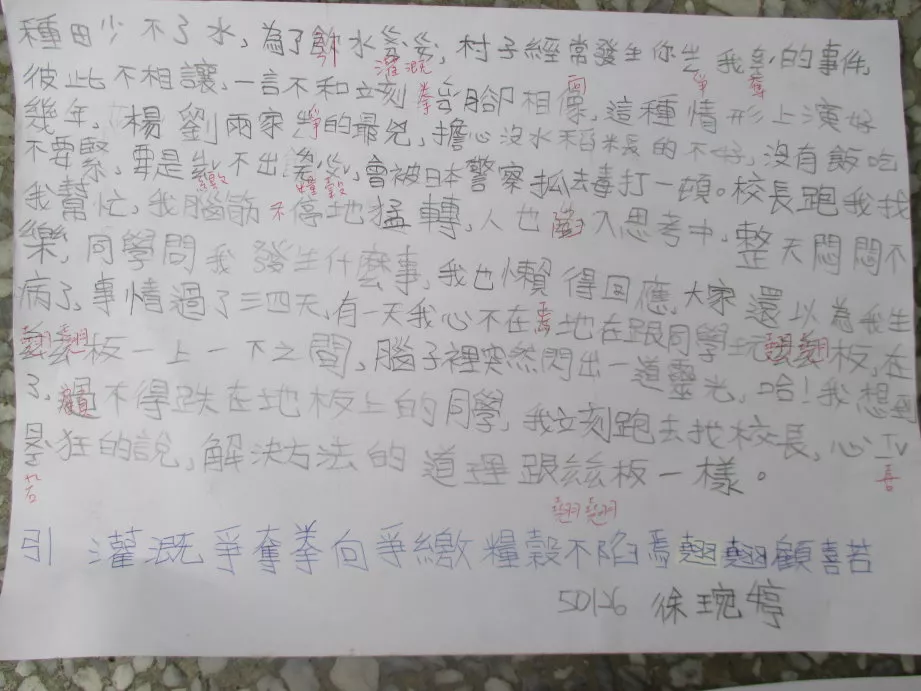 種田少不了水，為了水，村子經常發生你我的事件，
引 灌溉 爭 奪
彼此不相讓，一言不和立刻拳腳相像，這種情形上演好
向
幾年，楊劉兩家爭的最兇，擔心沒水稻米長的不好，沒有飯吃
不要緊，要是不出，會被日本警察抓去毒打一頓。校長跑我找
繳 糧穀
我幫忙，我腦筋不停地猛轉，人也陷入思考中，整天悶悶不
樂，同學問我發生什麼事，我也懶得回應，大家還以為我生
病了，事情過了三四天，有一天我心不在焉地在跟同學玩翹翹板，在
翹翹板一上一下之間，腦子裡突然閃出一道靈光，哈！我想到
了，顧不得跌在地板上的同學，我立刻跑去找校長，心
狂的說，解決方法的道理跟板一樣。
若 喜
翹翹
引 灌溉爭奪拳向爭繳糧穀不陷焉翹翹顧喜若
50126 徐琬婷